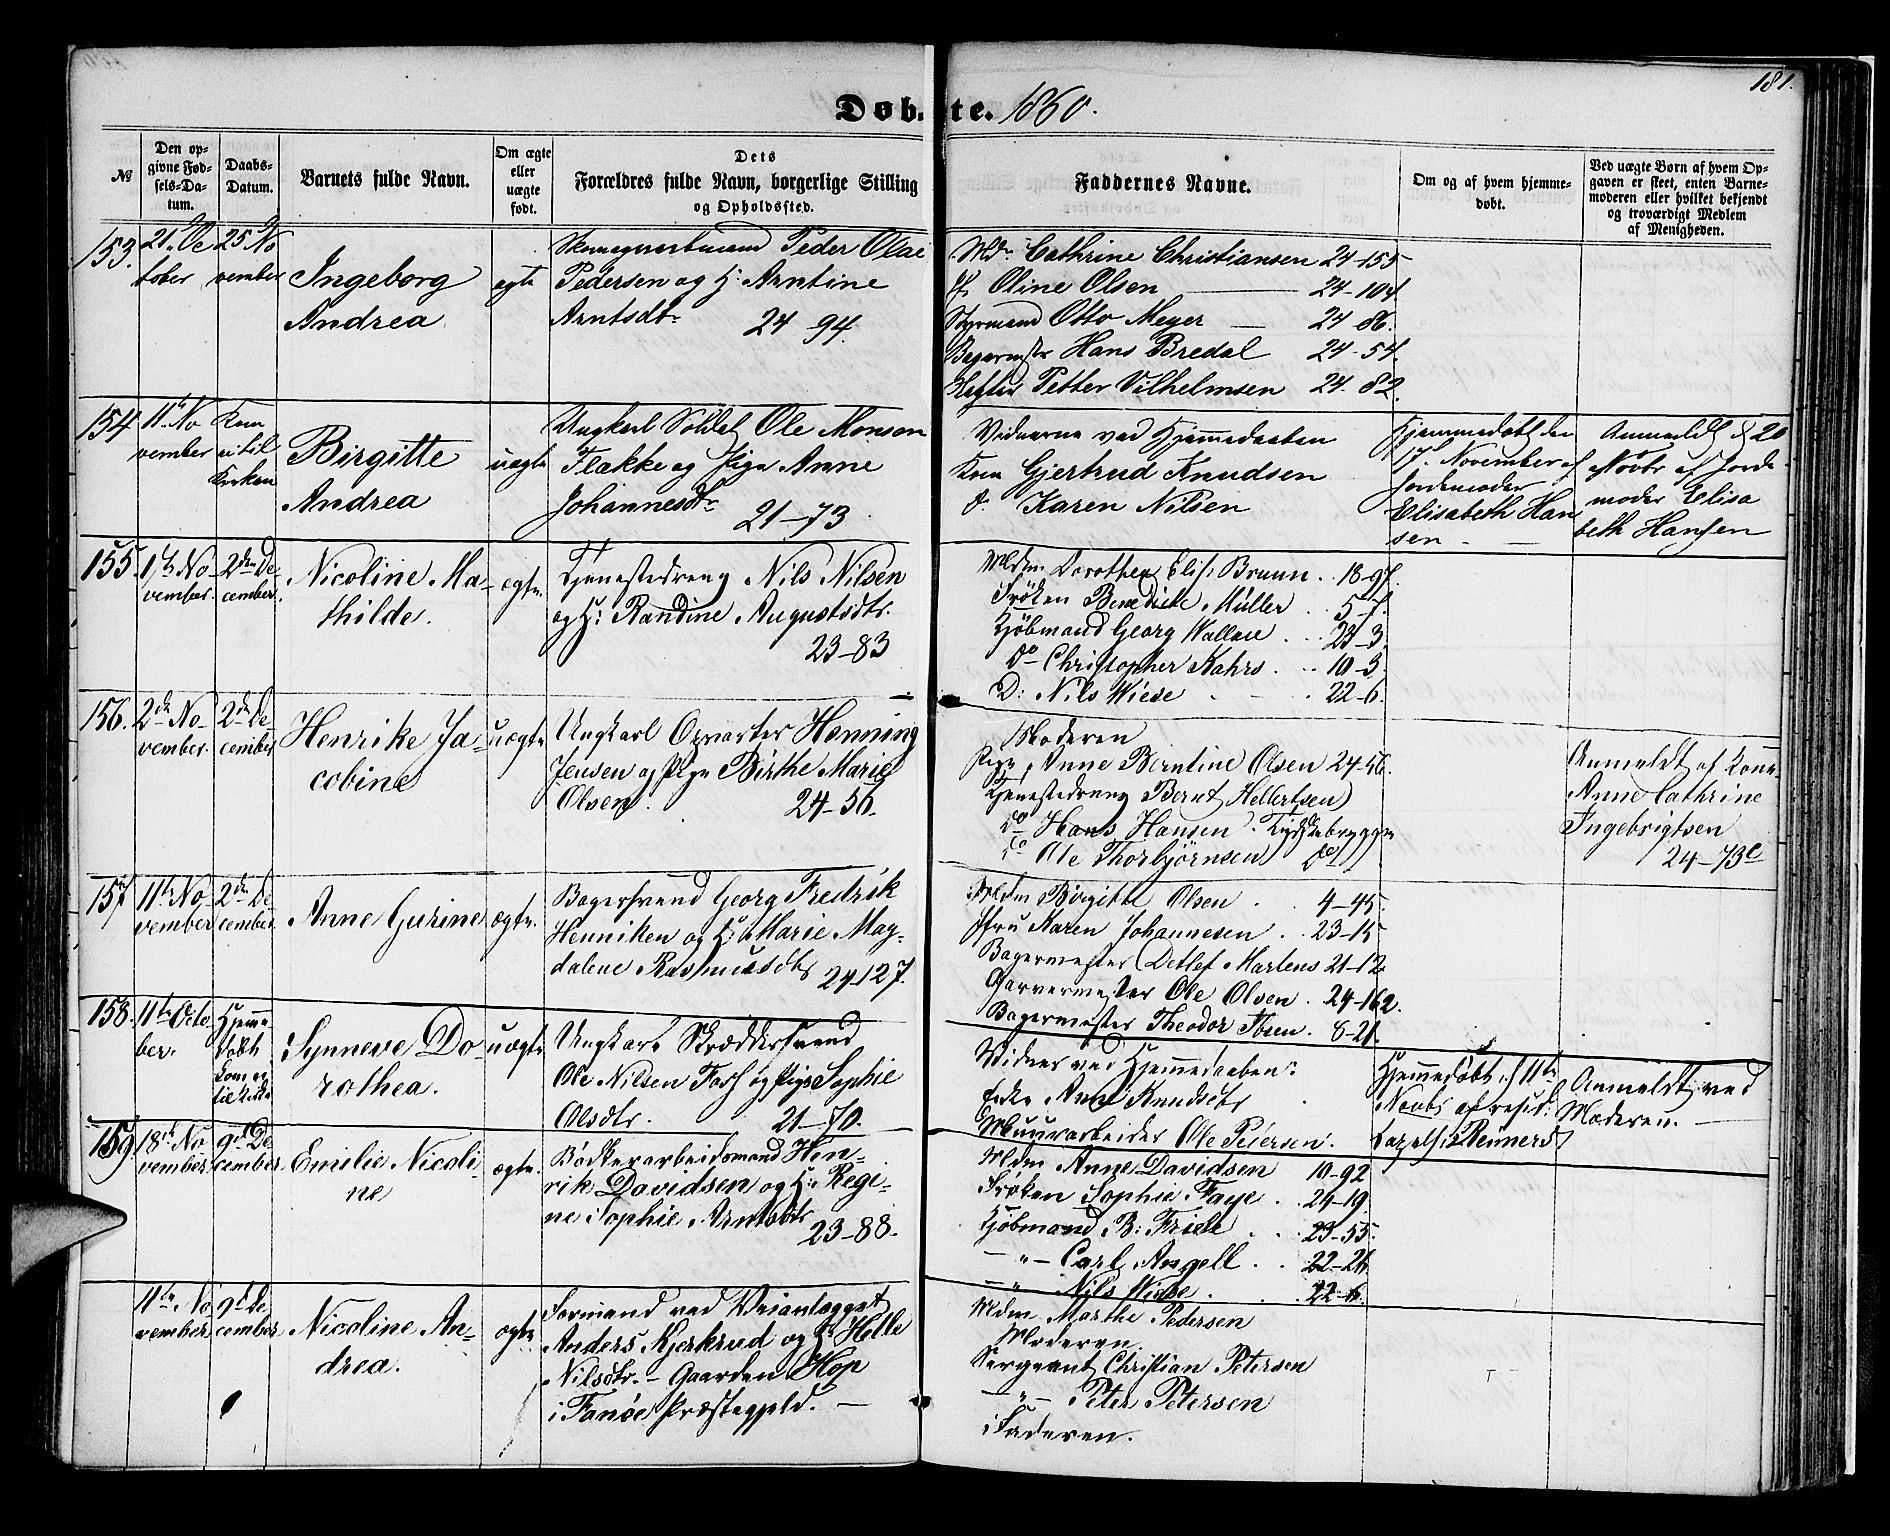 181.
Døbte. 1860.
No
Den op-
givne Fød-
sels-Da-
tum.
Daabs-
Datum.
Barnets fulde Navn.
Om ægte
eller
uægte
født.
Dets
Forældres fulde Navn, borgerlige Stilling
og Opholdssted.
Faddernes Navne.
Om og af hvem hjemme-
døbt.
Ved uægte Børn af hvem Op-
gaven er skeet, enten Barne-
moderen eller hvilket bekjendt
og troværdigt Medlem
af Menigheden.
153.
21. Oc
tober
25 No
vember
Ingeborg
Andrea
ægte
Peder Olai
Pedersen og H: Arntine
Arntsdtr
24-94.
Mdm Cathrine Christiansen 24-155
Oline Olsen 24-104
Styrmand Otto Meyer 24-86.
Bagermstr Hans Bredal 24-54
Petter Vilhelmsen 24-82.
154
11te No
vember
Kom
ei til
Kirken
Birgitte
Andrea
uægte
Ungkarl Soldat Ole Monsen
Flække og Pige Anne
Johannesdtr
21-73
Vidnerne ved Hjemmedaaben
Kone Gjertrud Knudsen
do Karen Nilsen
Hjemmedøbt den
17. November af
Jordemoder
Elisabeth Han
sen
Anmeldt d 20
Novbr af Jorde
moder Elisa
beth Hansen
155.
1ste No-
vember.
2den De-
cember.
Nicoline Ma-
thilde.
ægte.
Tjenestedreng Nils Nilsen
og H: Randine Augustsdtr.
23-83
Mdm Dorothea Elis: Bruun 18-97.
Frøken Benedicte Müller 5-7.
Kjøbmand Georg Wallace 23-3
do Christopher Kahrs 10-3.
D: Nils Wiese 22-6.
156.
2den No-
vember.
2den De-
cember
Henrike Ja-
cobine
uægte
Ungkarl Opvarter Henning
Jensen og Pige Birthe Marie
Olsen.
24-56.
Moderen
Pige Anne Berntine Olsen 24-56.
Tjenestedreng Bernt Hellertsen
do Hans Hansen. Tydskebryggen
do Ole Thorbjørnsen do
Anmeldt af Kone
Anne Cathrine
Ingebrigtsen
24-73c
157
11te No
vember
2den De-
cember.
Anne Gurine
ægte.
Bagersvend Georg Fredrik
Henniken og H: Marie Mag-
dalene Rasmusdtr 24-127.
Mdm Birgitte Olsen 4-45.
Jfru Karen Johannesen 23-15
Bagermester Detlef Martens 21-12
Garvermester Ole Olsen. 24-162.
Bagermester Theodor Ibsen. 8-21.
158.
11te Octo
ber.
Hjemme
døbt
kom ei
til Kirke
Synneve Do-
rothea.
uægte
Ungkarl Skræddersvend
Ole Nilsen og Pige Sophie
Olsdtr.
21-70.
Vidner ved Hjemmedaaben:
Enke Anne Knudsdtr
Muurarbeider Ole Petersen.
Hjemmedøbt d. 11te
Novbr af resid:
Reimers
Anmeldt ved
Moderen.
159
18de No
vember
9de De
cember
Emilie Nicoli-
ne
ægte.
Bødkerarbeidsmand Hen-
rik Davidsen og H: Regi-
ne Sophie Arntsdtr
23-88.
Mdm Anne Davidsen 10-92
Frøken Sophie Faye 24-19.
Kjøbmand B: Friele 23-55.
-"- Carl Angell 22-26
-"- Nils Wiese. 22-6.
11te No
vember
9de De
cember
Nicoline An-
drea.
ægte
Formand ved Veianlægget
Anders Kjerkrud og H: Helle
Nilsdtr. - Gaarden Hop
i Fanøe Præstegjeld.
Mdm Marthe Pedersen
Moderen.
Sergeant Christian Petersen
-"- Peter Petersen
Faderen.